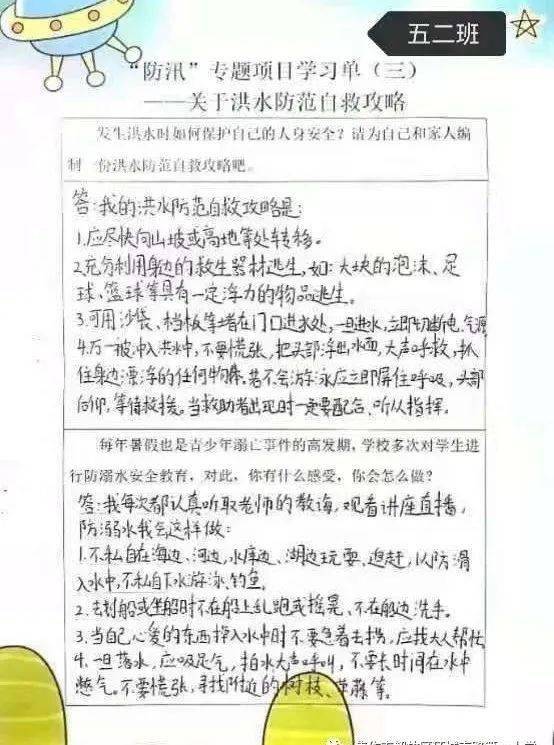 五二班
“防汛”专题项目学习单（三）
——关于洪水防范自救攻略
发生洪水时如何保护自己的人身安全？请为自己和家人编
制一份洪水防范自救攻略吧。
答:我的洪水防范自救攻略是:
1.应尽快向山坡或高地等处转移。
2.充分利用身边的救生器材逃生,如:大块的泡沫、足
球、篮球等具有一定浮力的物品逃生。
3.可用沙袋、档板等堵在门口进水处,一旦进水,立即切断电、气源
4.万一被冲入洪水中,不要慌张,把头部浮出水面,大声呼救,抓
住身边漂浮的任何物体。若不会游泳应立即屏住呼吸,头部
向仰,等待救援。当救助者出现时一定要配合、听从指挥。
每年暑假也是青少年溺亡事件的高发期，学校多次对学生进
行防溺水安全教育，对此，你有什么感受，你会怎么做？
答:我每次都认真听取老师的教诲,观看讲座直播,
防溺水我会这样做:
1.不私自在海边、河边,水库边、湖边玩耍、追赶,以防滑
入水中,不私自下水游泳、钓鱼。
2.去划船或坐船时不在船上乱跑或摇晃、不在船边洗手。
3.当自己心爱的东西掉入水中时不要急着去捞,应找大人帮忙
4.一旦落水,应吸足气,拍水大声呼叫,不要长时间在水中
憋气。不要慌张,寻找附近的树枝、草藤等。